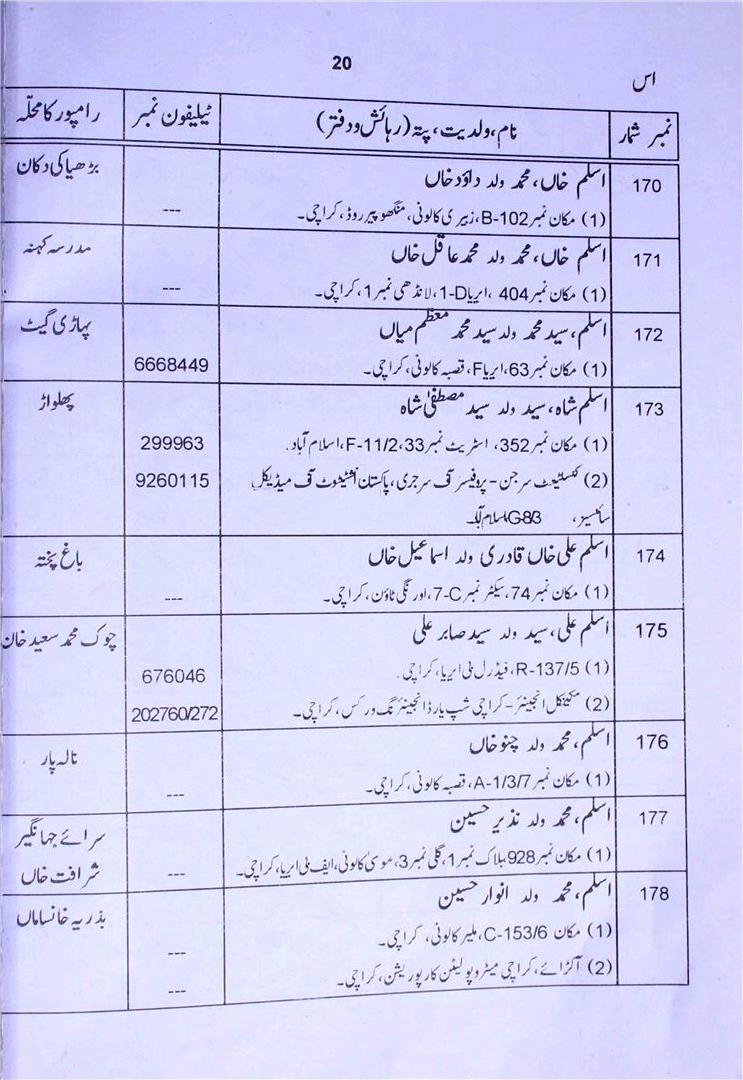 20
اس
نمبر شمار	نام، ولدیت، پتہ (رہائش و دفتر)	ٹیلیفون نمبر	رامپور کا محلّہ
170	اسلم خاں، محمد ولد داؤد خاں	بڑھیا کی دکان
(1) مکان نمبر B-102، زبیری کالونی، منگھوپیر روڈ، کراچی۔	---
171	اسلم خاں، محمد ولد محمد عاقل خاں	مدرسہ کہنہ
(1) مکان نمبر 404، ایریا 1-D، لانڈھی نمبر 1، کراچی۔	---
172	اسلم، سید محمد ولد سید محمد معظم میاں	پہاڑی گیٹ
(1) مکان نمبر 63، ایریا F، قصبہ کالونی، کراچی۔	6668449
173	اسلم شاہ، سید ولد سید مصطفیٰ شاہ	پھلواڑ
(1) مکان نمبر 352، اسٹریٹ نمبر 33، F-11/2، اسلام آباد۔	299963
(2) کنسلٹینٹ سرجن - پروفیسر آف سرجری، پاکستان انسٹیٹوٹ آف میڈیکل	9260115
سائنسیز، G-8/3 اسلام آباد۔
174	اسلم علی خاں قادری ولد اسماعیل خاں	باغ پختہ
(1) مکان نمبر 74، سیکٹر نمبر 7-C، اورنگی ٹاؤن، کراچی۔	---
175	اسلم علی، سید ولد سید صابر علی	چوک محمد سعید خان
(1) R-137/5، فیڈرل بی ایریا، کراچی۔	676046
(2) مکینکل انجینئر - کراچی شپ یارڈ انجینئرنگ ورکس، کراچی۔	202760/272
176	اسلم، محمد ولد چنو خاں	نالہ پار
(1) مکان نمبر A-1/3/7، قصبہ کالونی، کراچی۔	---
177	اسلم، محمد ولد نذیر حسین	سرائے جہانگیر
(1) مکان نمبر 928، بلاک نمبر 1، گلی نمبر 3، موسیٰ کالونی، ایف بی ایریا، کراچی۔	---	شرافت خاں
178	اسلم، محمد ولد انوار حسین	بذریہ خانساماں
(1) مکان C-153/6، ملیر کالونی، کراچی۔	---
(2) آکڑائے، کراچی میٹروپولیٹن کارپوریشن، کراچی۔	---